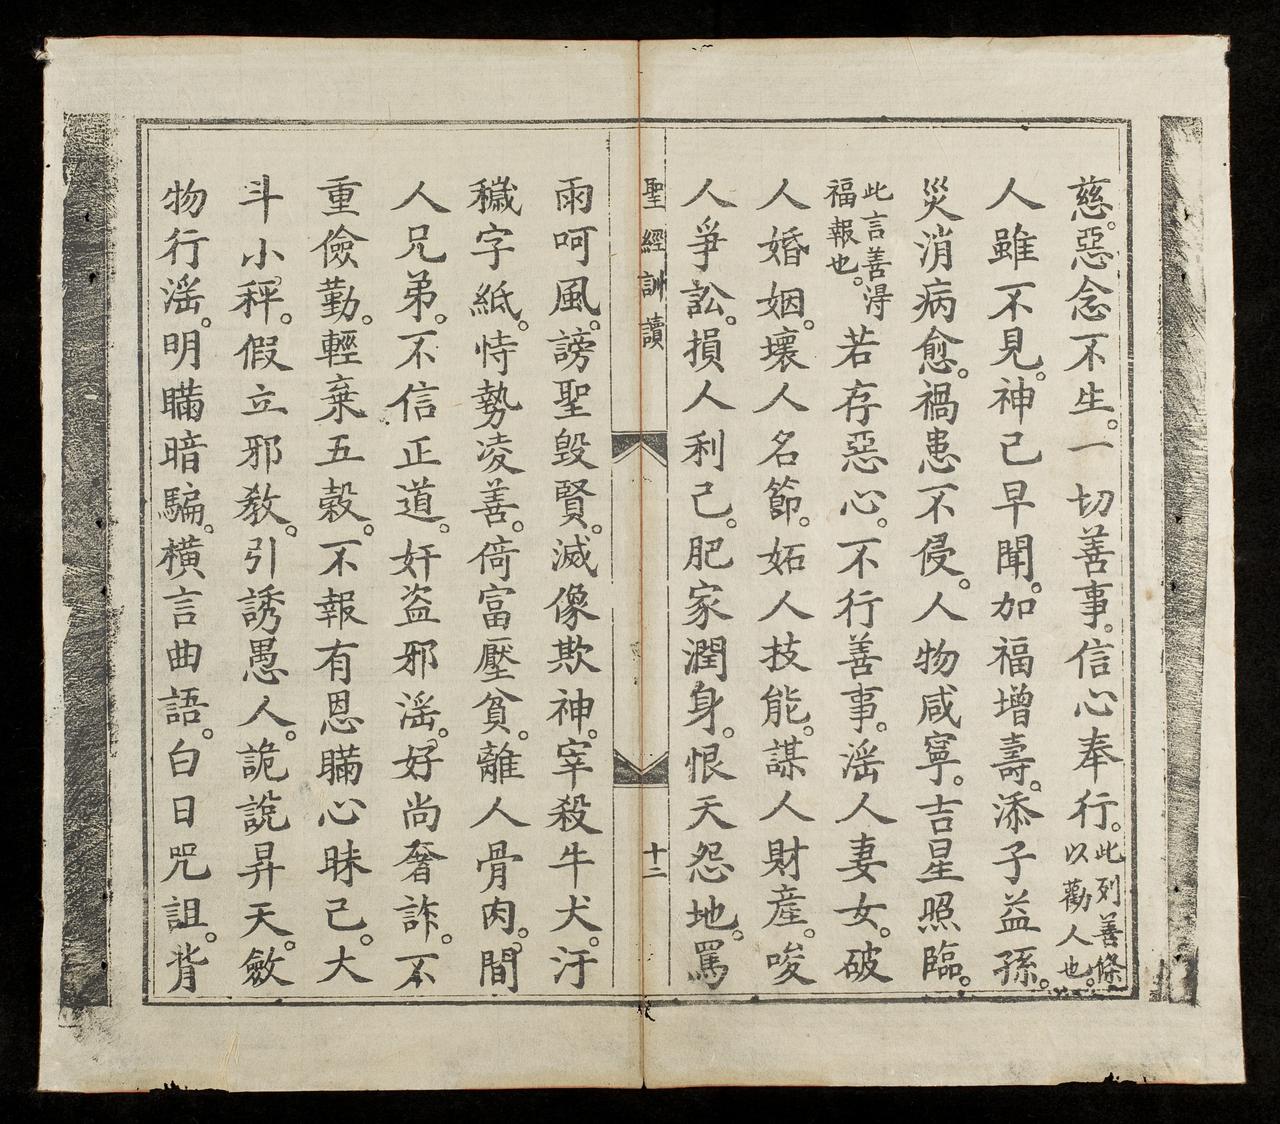 慈。惡念不生。一切善事。信心奉行。此列善條以勸人也。
人雖不見。神已早聞。加福增壽。添子益孫。
災消病愈。禍患不侵。人物咸寧。吉星照臨。
此言善得福報也。若存惡心。不行善事。滛人妻女。破
人婚姻。壞人名節。妬人技能。謀人財產。唆
人爭訟。損人利己。肥家潤身。恨天怨地。罵
聖經訓讀
十二
雨呵風。謗聖毀賢。滅像欺神。宰殺牛犬。汙
穢字紙。恃勢凌善。倚富壓貧。離人骨肉。間
人兄弟。不信正道。奸盜邪滛。好尚奢詐。不
重儉勤。輕棄五穀。不報有恩。瞞心昧己。大
斗小秤。假立邪教。引誘愚人。詭說昇天。斂
物行滛。明瞞暗騙。橫言曲語。白日咒詛。背